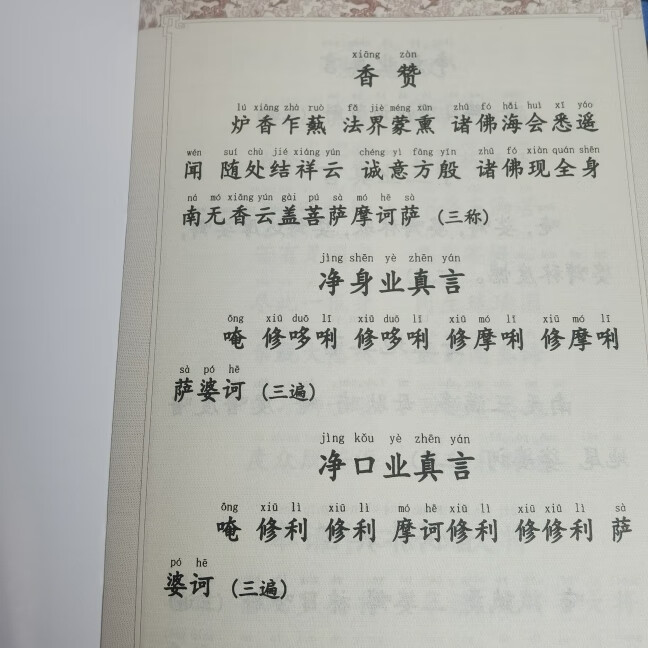 xiāng zàn
香 赞
lú xiāng zhà ruò fǎ jiè méng xūn zhū fó hǎi huì xī yáo
炉香乍爇 法界蒙熏 诸佛海会悉遥
wén suí chù jié xiáng yún chéng yì fāng yīn zhū fó xiàn quán shēn
闻 随处结祥云 诚意方殷 诸佛现全身
ná mó xiāng yún gài pú sà mó hē sà
南无香云盖菩萨摩诃萨（三称）
jìng shēn yè zhēn yán
净身业真言
ōng xiū duō lī xiū duō lī xiū mó lī xiū mó lī
唵 修哆唎 修哆唎 修摩唎 修摩唎
sà pó hē
萨婆诃（三遍）
jìng kǒu yè zhēn yán
净口业真言
ōng xiū lì xiū lì mó hē xiū lì xiū xiū lì sà
唵 修利 修利 摩诃修利 修修利 萨
pó hē
婆诃（三遍）